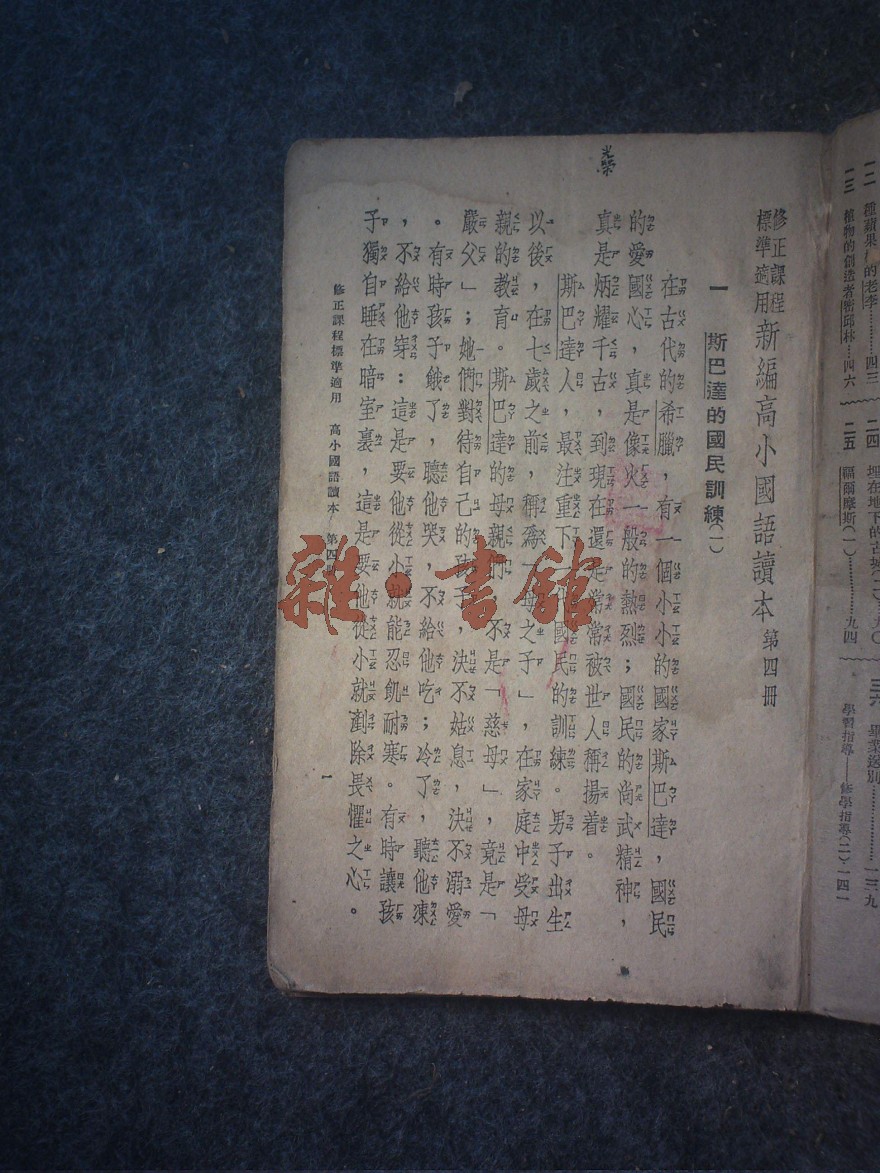 光榮
修正課程
標準適用
新編高小國語讀本 第四冊
一 斯巴達的國民訓練(一)
在古代的希臘,有一個小小的國家斯巴達,國民
的愛國心,真是像火一般的熱烈;國民的尚武精神,
真是炳耀千古,到現在還是常常被世人稱揚着。
斯巴達人,最注重下一國民的訓練。男子出生
以後,在七歲之前,稱爲「母之子」,在家庭中受母
親的教育。斯巴達的母親,不是「慈母」,竟是「
嚴父」;她們對待自己的孩子,決不姑息,決不溺愛
。有時孩子餓了,聽他哭,不給他吃;冷了,聽他凍
,不給他穿:這是要他從小就能忍飢耐寒。有時讓孩
子獨自睡在暗室裏,這是要他從小就剷除畏懼之心。
修正課程標準適用 高小國語讀本 第四
一
二 種蘋果的老李…………四三
二三 植物的創造者密邱林…四六
二四 埋在地下的古城(二)九〇
二五 福爾摩斯(一)…………九四
三六 畢業送別…………一三九
學習指導——修學指導(二)一四一
雜·書館